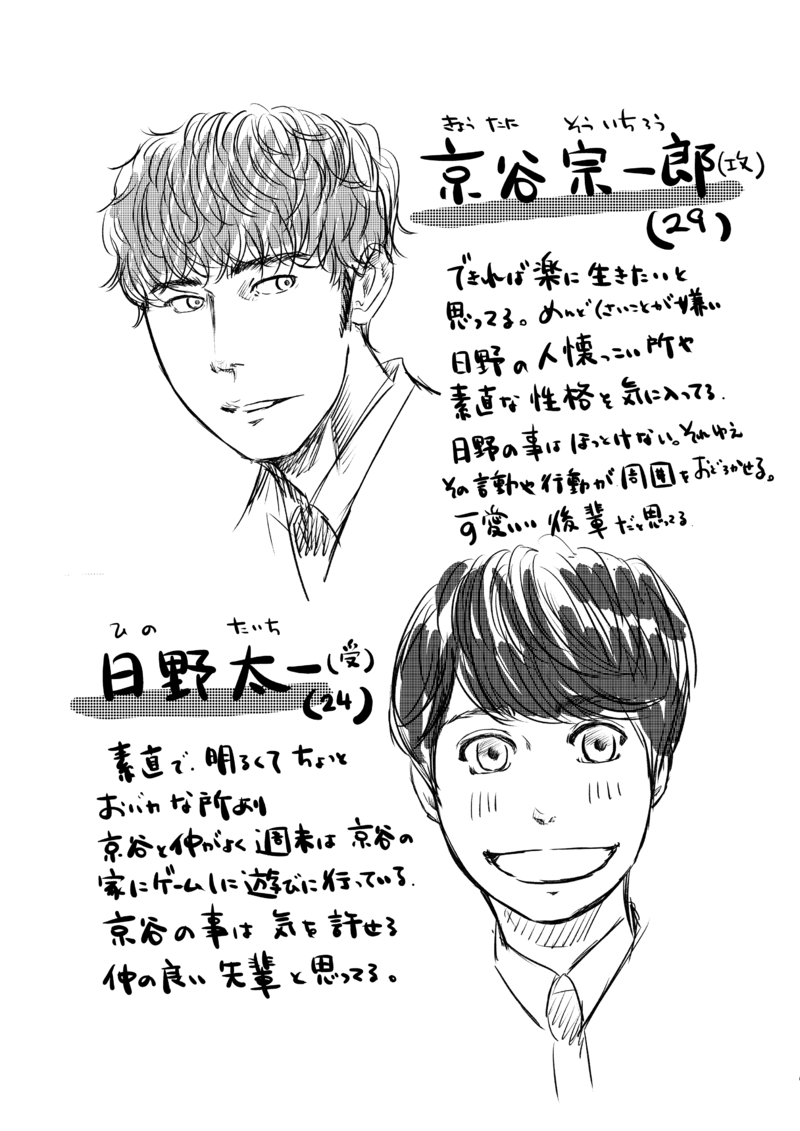 きょうたに そういちろう
京谷宗一郎(攻)
(29)
できれば楽に生きたいと
思ってる。めんどくさいことが嫌い
日野の人懐っこい所や
素直な性格を気に入ってる.
日野の事はほっとけない。それゆえ
その言動や行動が周囲をおどろかせる。
可愛いい後輩だと思ってる
ひの たいち
日野太一(受)
(24)
素直で.明るくてちょっと
おバカな所あり
京谷と仲がよく週末は京谷の
家にゲームしに遊びに行っている.
京谷の事は気を許せる
仲の良い先輩と思ってる。